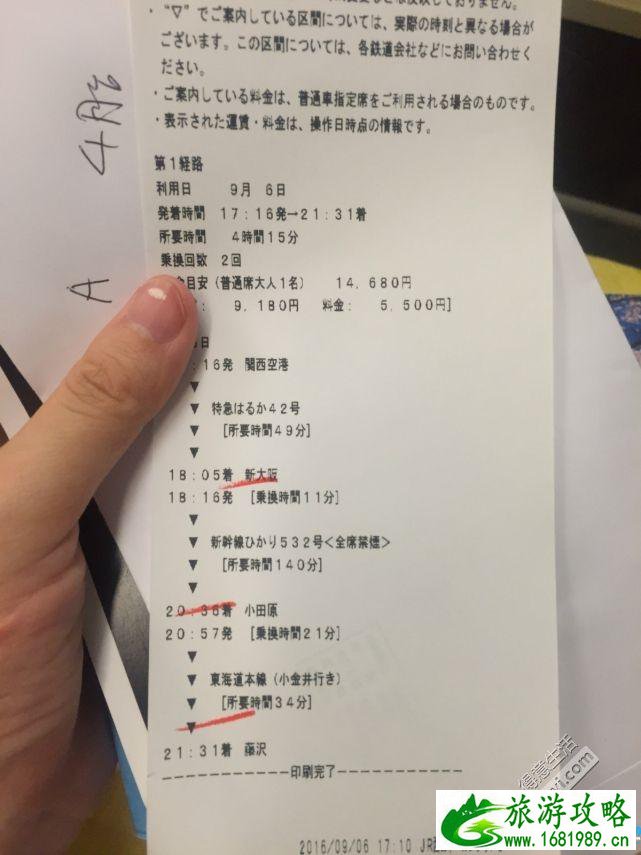 ・"▽"でご案内している区間については、実際の時刻と異なる場合が
ございます。この区間については、各鉄道会社などにお問い合わせく
ださい。
・ご案内している料金は、普通車指定席をご利用される場合のものです。
・表示された運賃・料金は、操作日時点の情報です。
第1経路
利用日 9月 6日
発着時間 17:16発→21:31着
所要時間 4時間15分
乗換回数 2回
目安(普通席大人1名) 14,680円
: 9,180円 料金: 5,500円]
日
:16発 関西空港
▼
▼ 特急はるか42号
▼ [所要時間49分]
▼
18:05着 新大阪
18:16発 [乗換時間11分]
▼
▼ 新幹線ひかり532号<全席禁煙>
▼ [所要時間140分]
▼
20:36着 小田原
20:57発 [乗換時間21分]
▼
▼ 東海道本線(小金井行き)
▼ [所要時間34分]
▼
21:31着 藤沢
--------------印刷完了--------------
2016/09/06 17:10 JR
4月台
A
得意生活
旅游攻略
www.1681989.cn